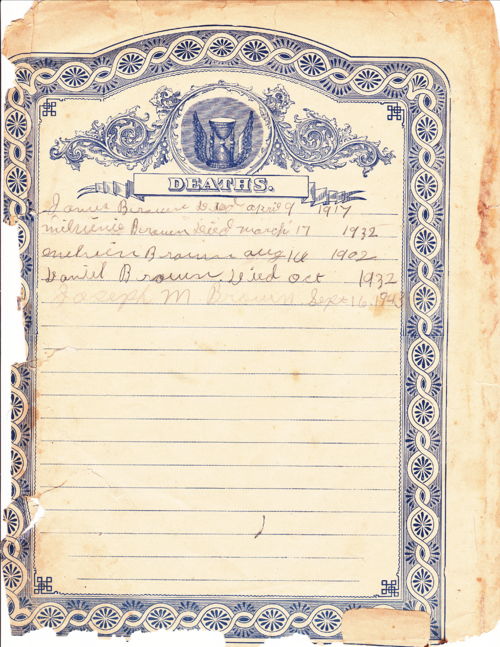 DEATHS.
James Brown Died april 9 1917
Brown died march 17 1932
Brown aug 1902
Daniel Brown Died oct 1932
Joseph M Brown Sept 16, 1943